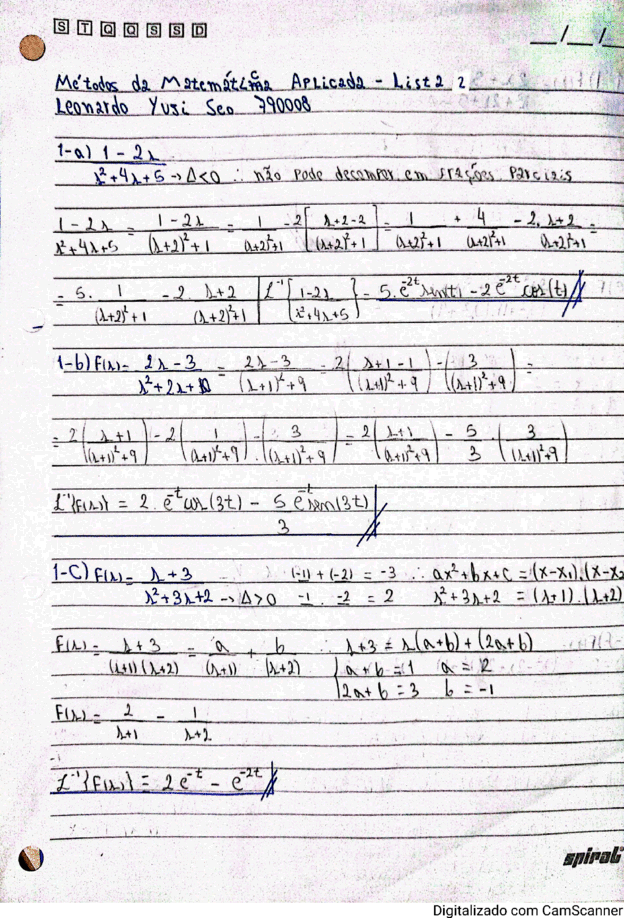 S T Q Q S S D
__/__/__
Métodos da Matemática Aplicada - Lista 2
Leonardo Yuzi Seo 790008
1-a) (1 - 2s)/(s²+4s+5) → Δ<0 ∴ não pode decompor em frações parciais
(1-2s)/(s²+4s+5) = (1-2s)/((s+2)²+1) = 1/((s+2)²+1) - 2[(s+2-2)/((s+2)²+1)] = 1/((s+2)²+1) + 4/((s+2)²+1) - 2. (s+2)/((s+2)²+1) =
= 5. 1/((s+2)²+1) - 2. (s+2)/((s+2)²+1) | ℒ⁻¹{(1-2s)/(s²+4s+5)} = 5.e^{-2t} sen(t) - 2e^{-2t} cos(t) //
1-b) F(s) = (2s-3)/(s²+2s+10) = (2s-3)/((s+1)²+9) = 2((s+1-1)/((s+1)²+9)) - (3/((s+1)²+9)) =
= 2((s+1)/((s+1)²+9)) - 2(1/((s+1)²+9)) - (3/((s+1)²+9)) = 2((s+1)/((s+1)²+9)) - 5/3 . (3/((s+1)²+9))
ℒ⁻¹{F(s)} = 2. e^{-t} cos(3t) - 5 e^{-t} sen(3t)/3 //
1-C) F(s) = (s+3)/(s²+3s+2) → Δ>0 (-1) + (-2) = -3 ∴ ax²+bx+c = (x-x₁).(x-x₂
-1 . -2 = 2 s²+3s+2 = (s+1).(s+2)
F(s) = (s+3)/((s+1)(s+2)) = a/(s+1) + b/(s+2) ∴ s+3 = s(a+b) + (2a+b)
{a+b = 1 a = 2
2a+b = 3 b = -1
F(s) = 2/(s+1) - 1/(s+2)
ℒ⁻¹{F(s)} = 2e^{-t} - e^{-2t} //
spiral
Digitalizado com CamScanner